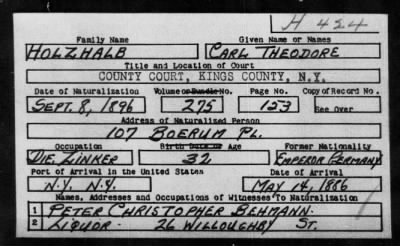 H 424
Family Name Given Name or Names
HOLZHALB CARL THEODORE
Title and Location of Court
COUNTY COURT, KINGS COUNTY, N.Y.
Date of Naturalization Volume or Bundle No. Page No. Copy of Record No.
SEPT. 8, 1896 275 153 See Over
Address of Naturalized Person
107 BOERUM PL.
Occupation Birth Date or Age Former Nationality
DIE. ZINKER 32 EMPEROR GERMANY
Port of Arrival in the United States Date of Arrival
N.Y. N.Y. MAY 14, 1886
Names, Addresses and Occupations of Witnesses To Naturalization
1 PETER CHRISTOPHER BEHMANN.
2 LIQUOR. 26 WILLOUGHBY ST.